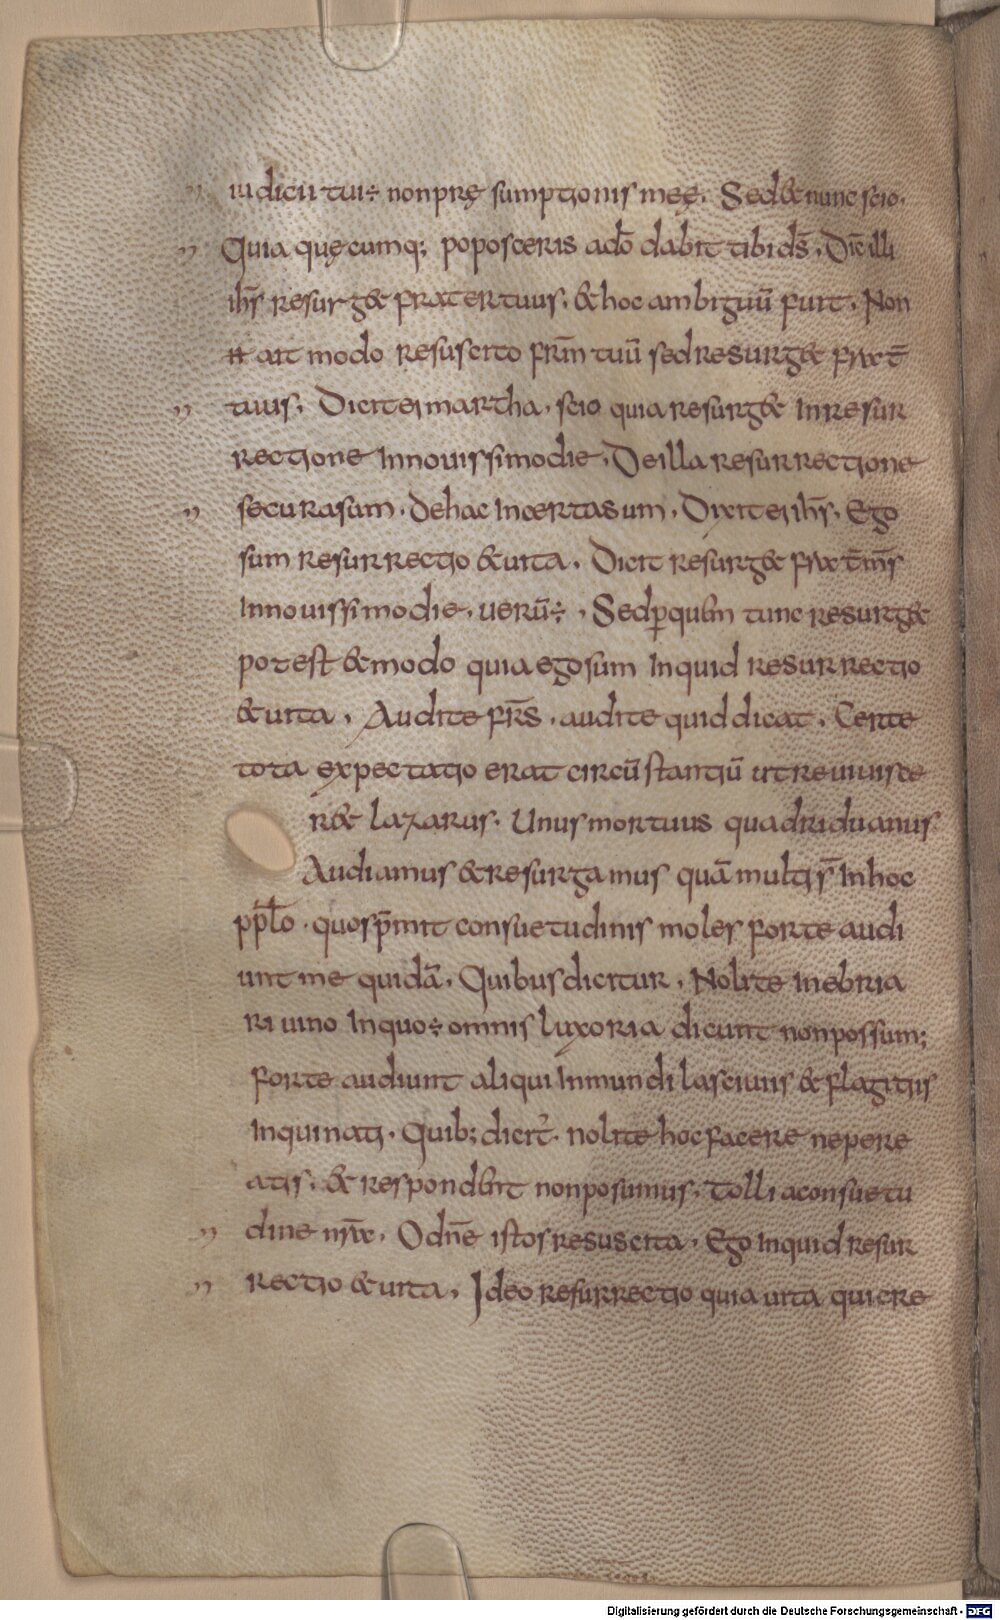 iudicii tui ÷ non pręsumptionis meę. Sed & nunc scio.
Quia quęcumq; poposceris a dō dabit tibi ds̄. Dic̄ illi
ihs̄ resurg& frater tuus. & hoc ambiguū fuit. Non
ait modo resuscito frm̄ tuū sed resurg& frat̄
tuus. Dicit ei martha. scio quia resurg& in resur
rectione in novissimo die. De illa resurrectione
secura sum. de hac incerta sum. Dixit ei ihs̄. Ego
sum resurrectio & vita. Dicit resurg& frat̄ ms̄
in novissimo die. verū ÷. Sed p̱ quē tunc resurg&
potest & modo quia ego sum inquid resurrectio
& vita. Audite frs̄. audite quid dicat. Certe
tota expectatio erat circūstantiū ut revivisce
r& lazarus. Unus mortuus quadriduanus
Audiamus & resurgamus quā multi s̄ in hoc
pp̄lo. quos p̄mit consuetudinis moles forte audi
unt me quidā. Quibus dicitur. Nolite inebria
ri vino in quo ÷ omnis luxoria dicunt non possum;
forte audiunt aliqui inmundi lasciviis & flagitiis
inquinati. Quib; dicit̄. nolite hoc facere ne pere
atis. & respondent non posumus. tolli a consuetu
dine nr̄a. O dn̄e istos resuscita. Ego inquid resur
rectio & vita. Ideo resurrectio quia vita qui cre
Digitalisierung gefördert durch die Deutsche Forschungsgemeinschaft - DFG